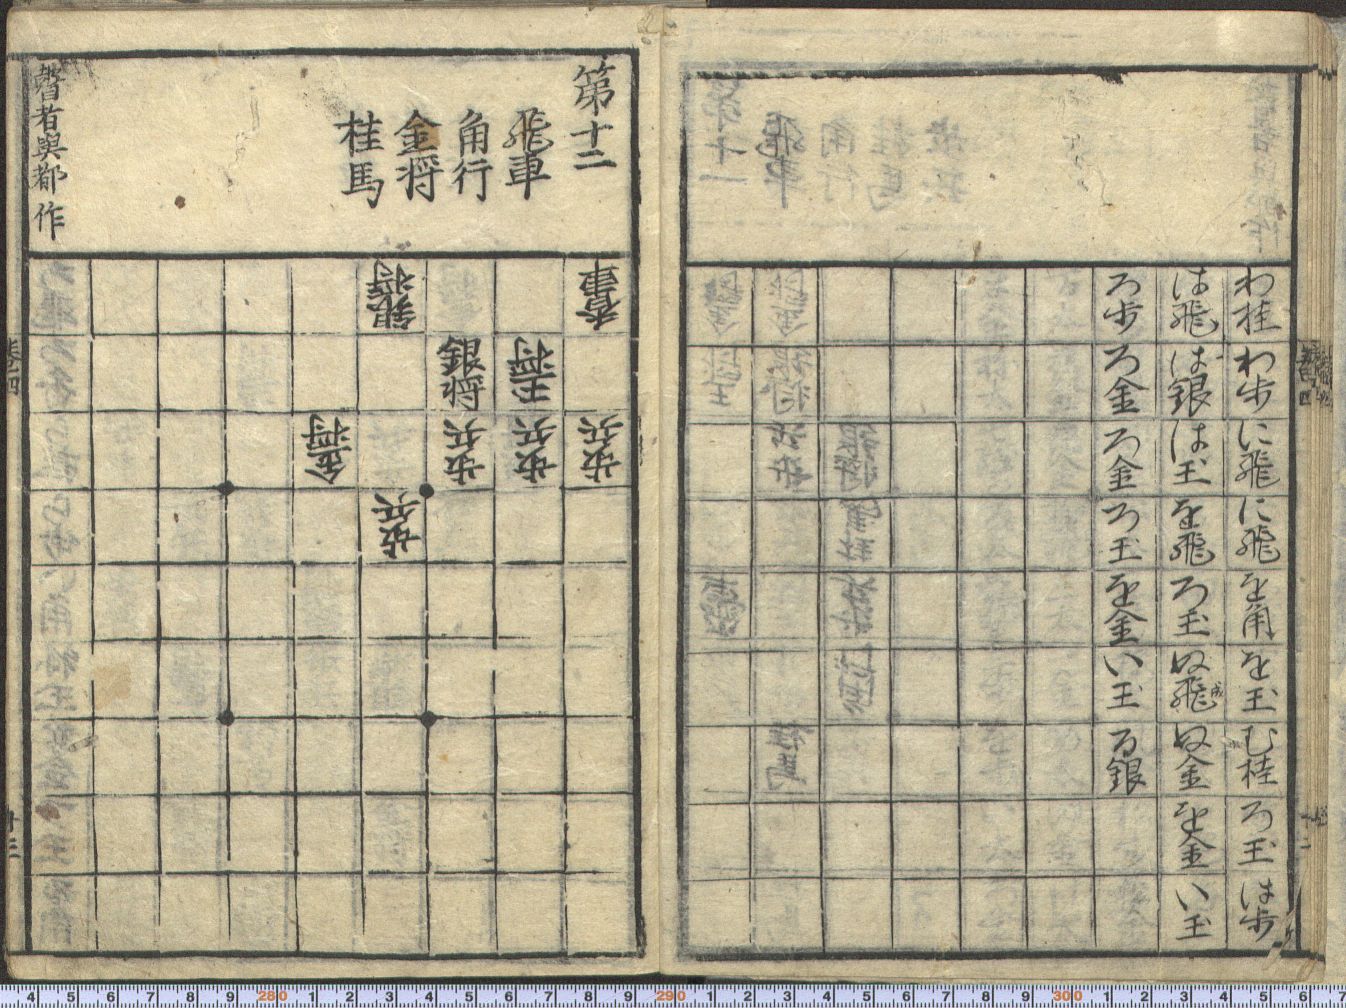 わ桂 わ歩 に飛 に飛 を角 を玉 む桂 ろ玉 は歩
は飛 は銀 は玉 を飛 ろ玉 ぬ飛成 ぬ金 を金 い玉
ろ歩 ろ金 ろ金 ろ玉 を金 い玉 る銀
第十二
飛車
角行
金将
桂馬
瞽者與都作
香車 歩兵
玉将 歩兵
銀将 歩兵
銀将 歩兵
金将